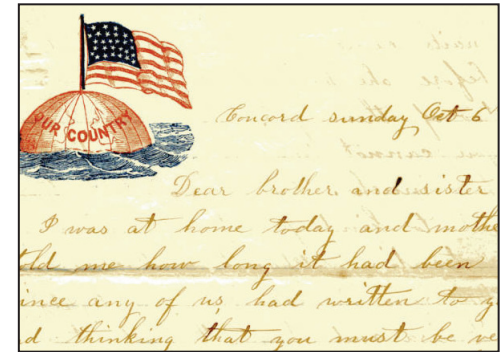 OUR COUNTRY
Concord sunday Oct 6
Dear brother and sister
I was at home today and mothe
old me how long it had been
ince any of us had written to y
d thinking that you must be ve